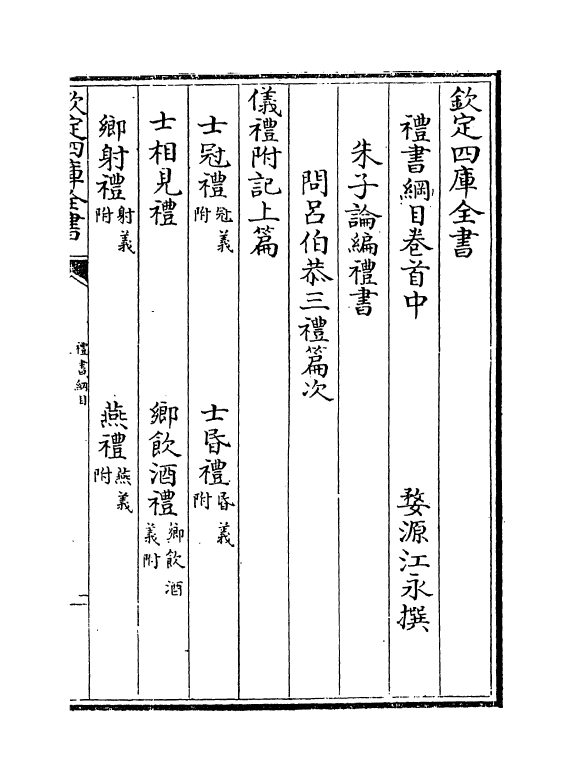 欽定四庫全書
禮書綱目卷首中
婺源江永撰
朱子論編禮書
問呂伯恭三禮篇次
儀禮附記上篇
士冠禮冠義附
士昏禮昏義附
士相見禮
鄉飲酒禮鄉飲酒義附
鄉射禮射義附
燕禮燕義附
欽定四庫全書
禮書綱目